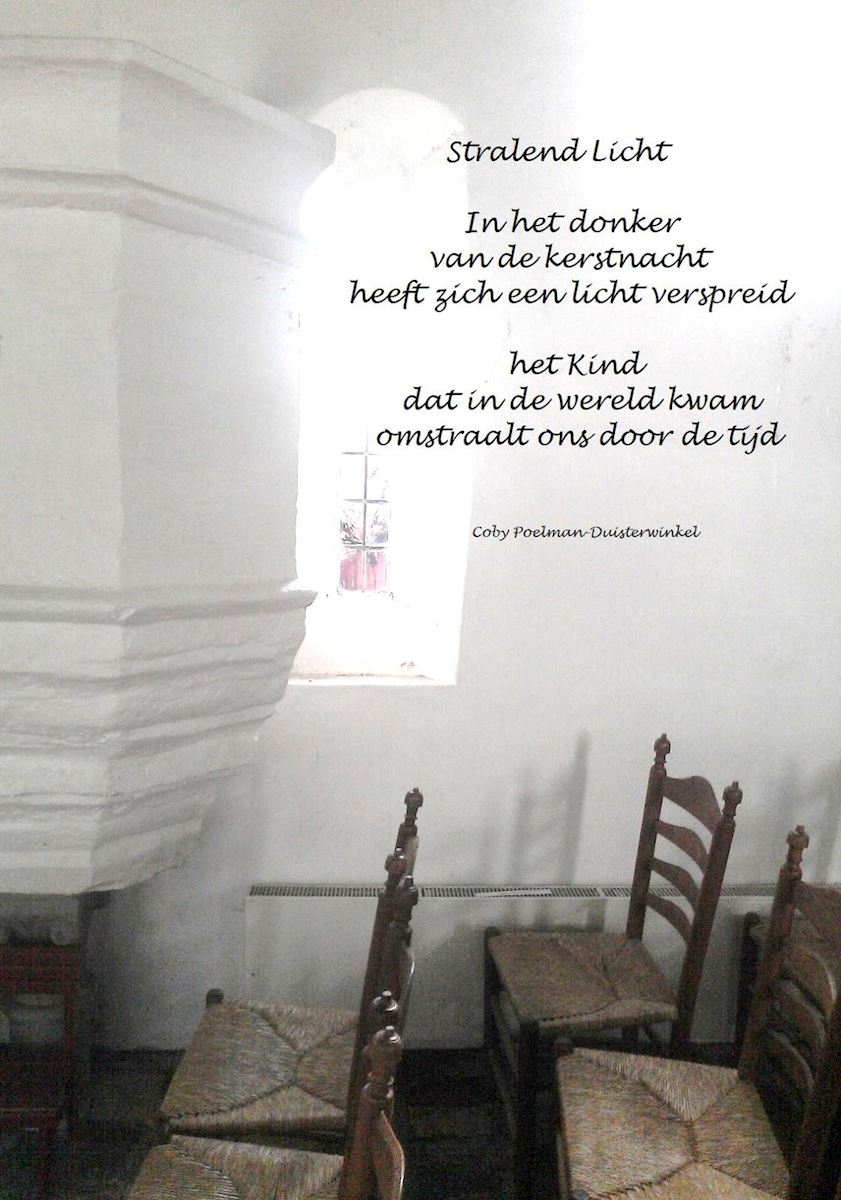 Stralend Licht
In het donker
van de kerstnacht
heeft zich een licht verspreid
het Kind
dat in de wereld kwam
omstraalt ons door de tijd
Coby Poelman-Duisterwinkel